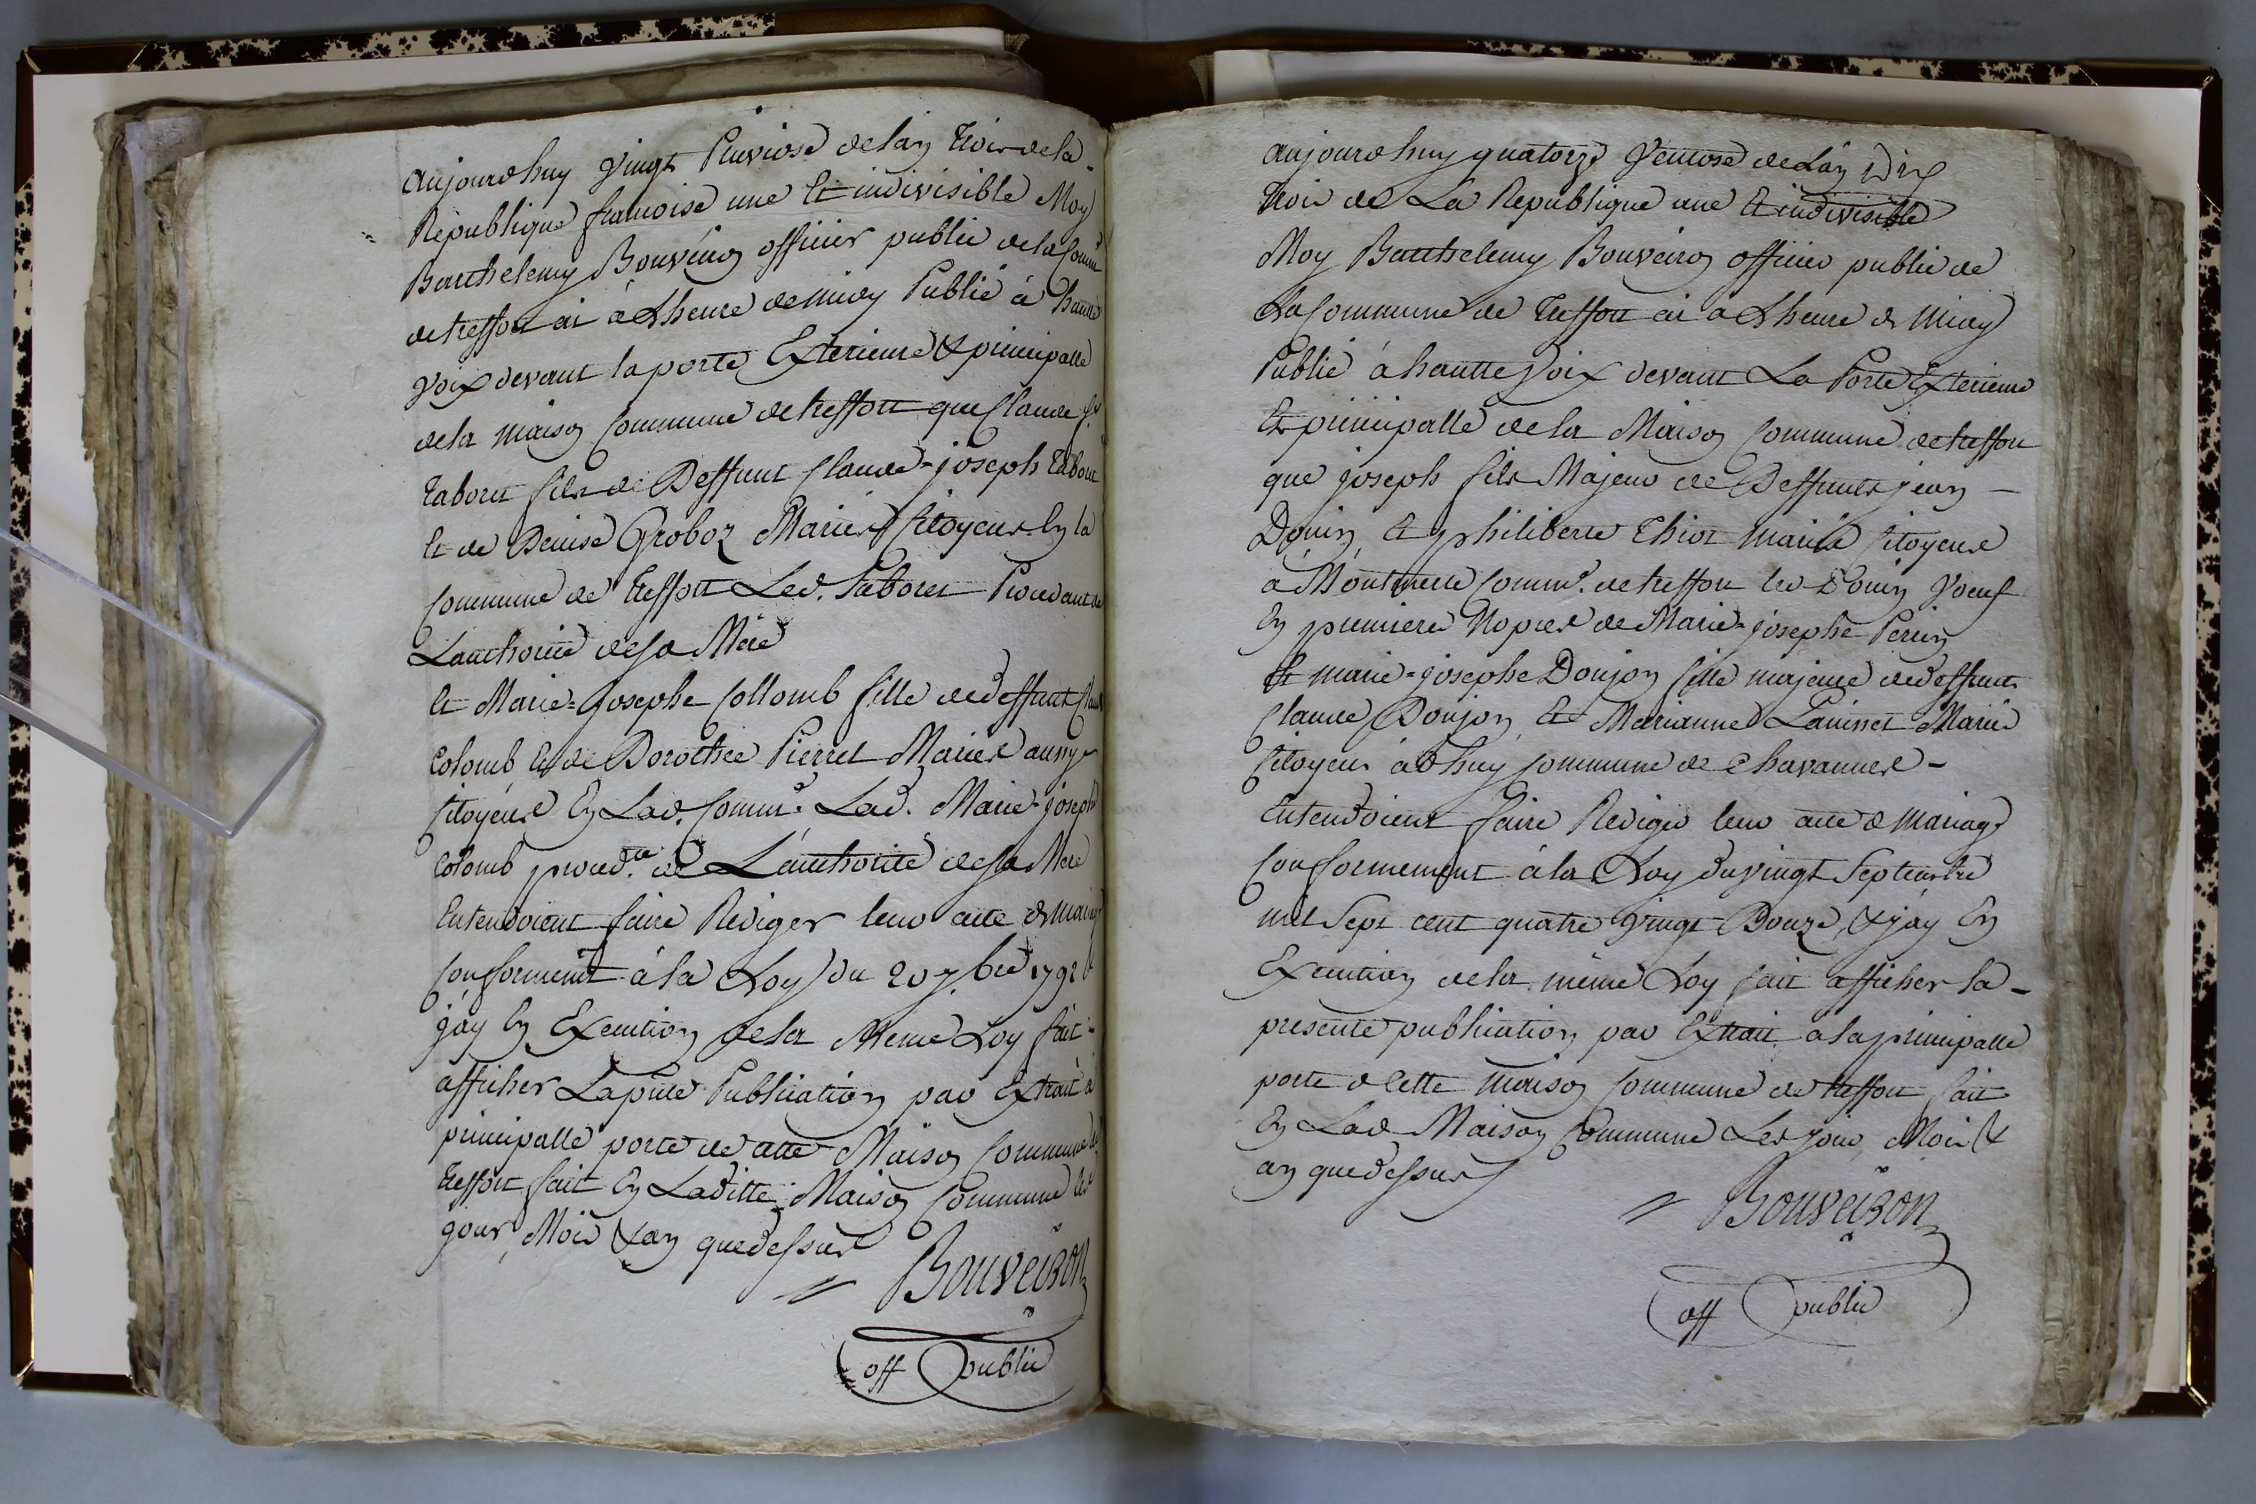 aujourdhuy vingt Pluviose de lan trois de la
Republique francoise une et indivisible Moy
Barthelemy Bouveiron officier public de la Comm
de treffort ai à L'heure de midy Publié à haute
voix devant la porte Exterieure & principalle
de la maison Commune de treffort que Claude
taboret fils de Deffunt Claude-joseph tabouret
Et de Denise Groboz Mariés Citoyens En la
Commune de treffort Led. Taboret Procedant de
L'authorité de sa Mere
Et Marie-Josephe Collomb fille de deffunt
Colomb Et de Dorothée Pierret Mariés aussy
Citoyens En Lad. Comm.e Lad. Marie-joseph
Colomb proced.te de L'authorité de sa Mere
Entendoient faire Rediger leur acte de mariage
Conformemt à la Loy du 20 7.bre 1792 &
j'ay En Execution de la Meme Loy fait
afficher La pnte Publication par Extrait à
principalle porte de cette Maison Commune de
treffort fait En Laditte Maison Commune les
jour, Mois & an que dessus
Bouveiron
off public
aujourdhuy quatorze Ventose de L'an
trois de La Republique une Et indivisible
Moy Barthelemy Bouveiron officier public de
La Commune de treffort ai à L'heure de Midy
Publié à hautte voix devant La Porte Exterieure
Et principalle de la Maison Commune de treffort
que joseph fils Majeur de Deffunts jean
Douin Et philiberte Thiot mariés Citoyens
à Montmerle Comm.e de treffort led Douin Voeuf
En premiere Nopces de Marie-josephe Perrin
Et marie-josephe Donjon fille majeure de deffunts
Claude Donjon Et Marianne Mariés
Citoyens à Dhuy commune de Chavannes
Entendoient faire Rediger leur acte de Mariage
Conformement à la Loy du vingt Septembre
mil Sept cent quatre vingt Douze, & j'ay En
Execution de la même Loy fait afficher la
presente publication par Extrait a la principalle
porte de Cette Maison Commune de treffort fait
En Lad Maison Commune Les jour, Mois &
an que dessus
Bouveiron
off public